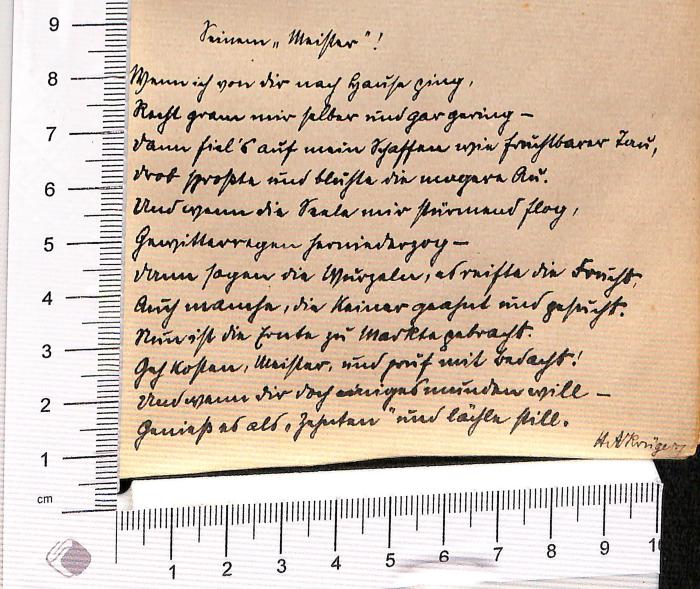 Seinem „Meister"!
Wenn ich von dir nach Hause ging,
Recht gram mir selber und gar gering –
Dann fiel's auf mein Schaffen wie fruchtbarer Tau,
Drob sproßte und blühte die magere Au.
Und wenn die Seele mir stürmend flog,
Gewitterregen herniederzog –
Dann sogen die Wurzeln, es reifte die Frucht,
Auch manche, die Keiner geahnt und gesucht.
Nun ist die Ernte zu Markte gebracht.
Geh kosten, Meister, und prüf mit Bedacht!
Und wenn dir doch einiges munden will –
Genieß es als „Zehnten" und lächle still.
H A Krüger
9
8
7
6
5
4
3
2
1
cm
1 2 3 4 5 6 7 8 9 1